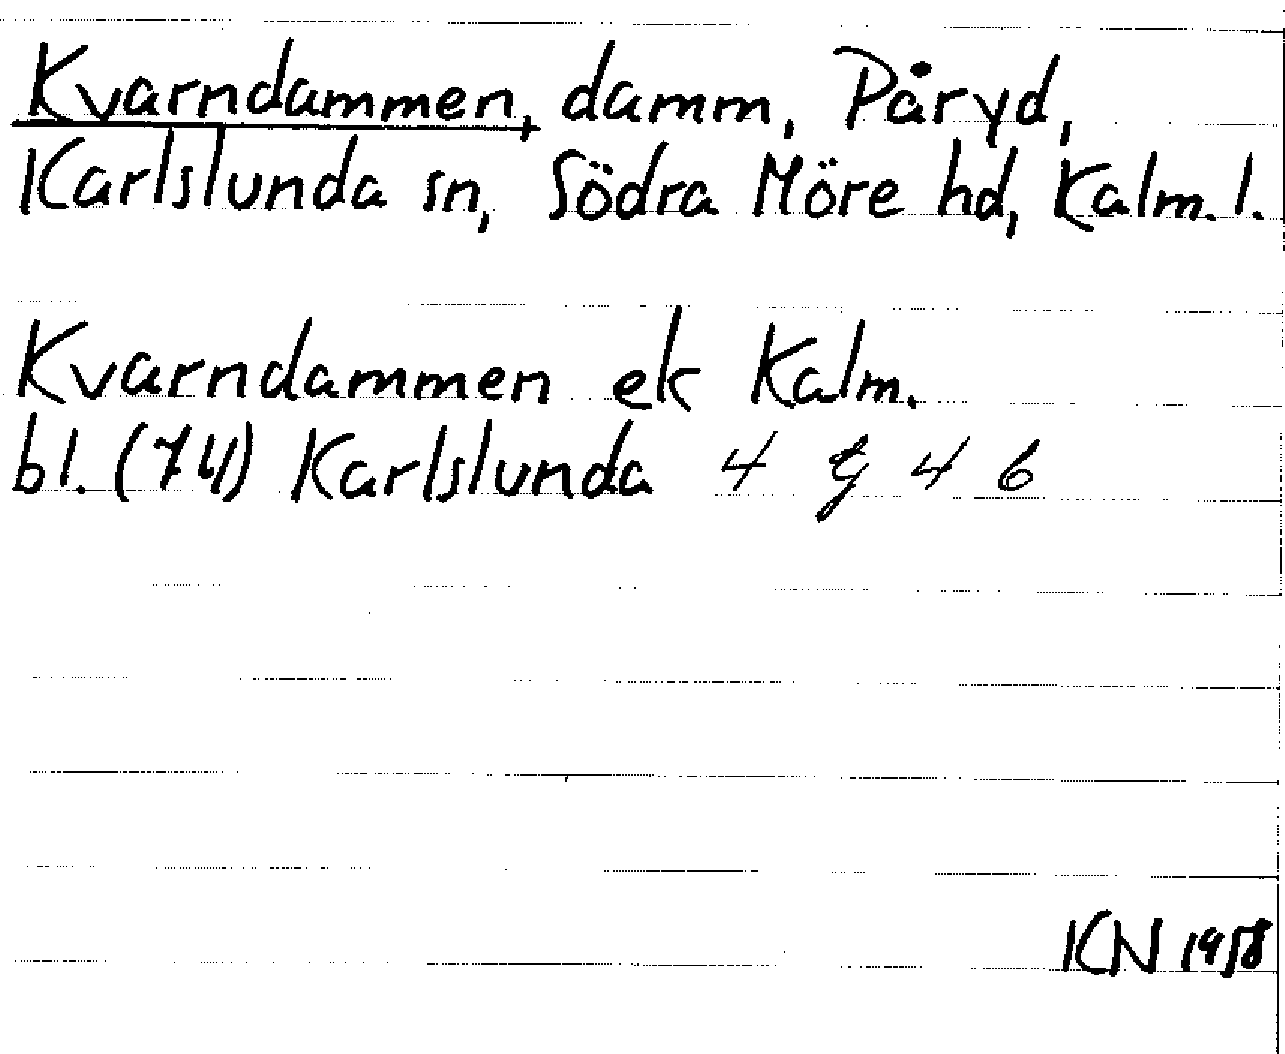 Kvarndammen, damm, Påryd,
Karlslunda sn, Södra Möre hd, Kalm. l.
Kvarndammen ek Kalm.
bl. (74) Karlslunda 4 g 4 6
KN 1958